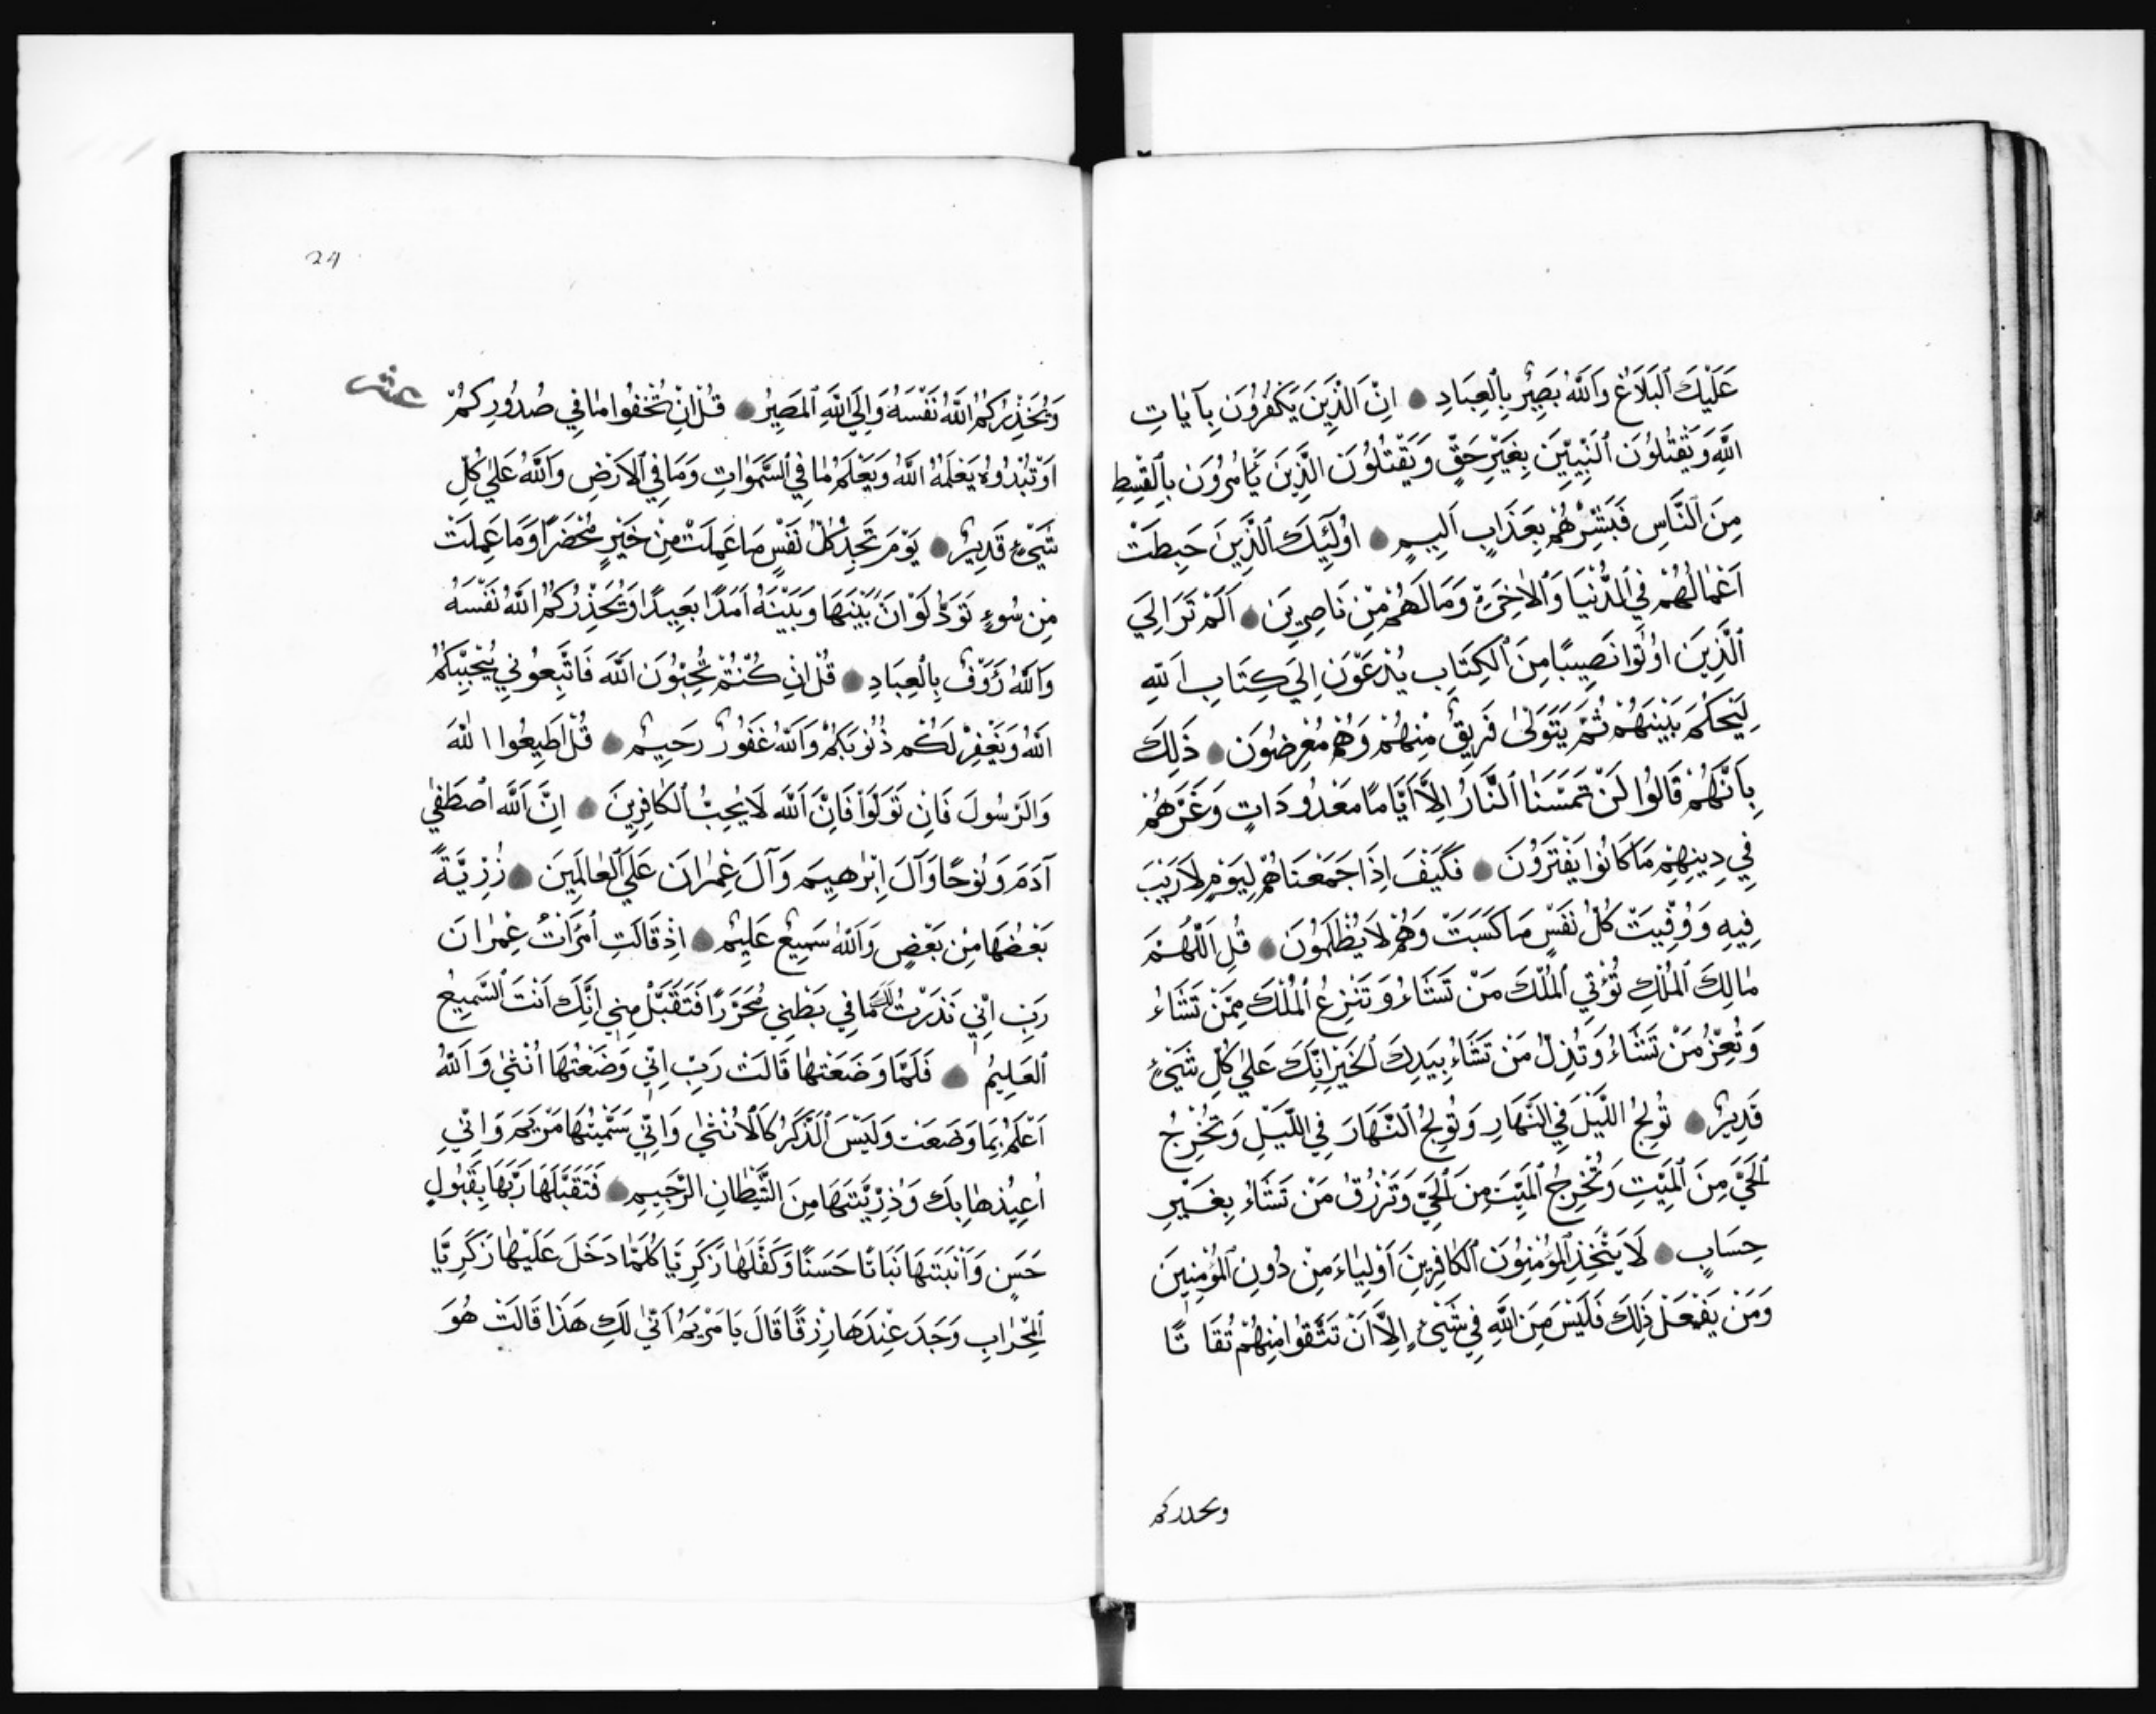 عَلَيْكَ ٱلْبَلَاغُ وَٱللَّهُ بَصِيرٌ بِٱلْعِبَادِ اِنَّ ٱلَّذِينَ يَكْفُرُونَ بِآيَاتِ
ٱللَّهِ وَيَقْتُلُونَ ٱلنَّبِيِّينَ بِغَيْرِ حَقٍّ وَيَقْتُلُونَ ٱلَّذِينَ يَأْمُرُونَ بِٱلْقِسْطِ
مِنَ ٱلنَّاسِ فَبَشِّرْهُمْ بِعَذَابٍ اَلِيمٍ اُولَٓئِكَ ٱلَّذِينَ حَبِطَتْ
اَعْمَالُهُمْ فِي ٱلدُّنْيَا وَٱلْاٰخِرَةِ وَمَا لَهُمْ مِنْ نَاصِرِينَ اَلَمْ تَرَ اِلَي
ٱلَّذِينَ اُوتُوا نَصِيبًا مِنَ ٱلْكِتَابِ يُدْعَوْنَ اِلَي كِتَابِ ٱللَّهِ
لِيَحْكُمَ بَيْنَهُمْ ثُمَّ يَتَوَلَّىٰ فَرِيقٌ مِنْهُمْ وَهُمْ مُعْرِضُونَ ذَلِكَ
بِاَنَّهُمْ قَالُوا لَنْ تَمَسَّنَا ٱلنَّارُ اِلَّا اَيَّامًا مَعْدُودَاتٍ وَغَرَّهُمْ
فِي دِينِهِمْ مَا كَانُوا يَفْتَرُونَ فَكَيْفَ اِذَا جَمَعْنَاهُمْ لِيَوْمٍ لَا رَيْبَ
فِيهِ وَوُفِّيَتْ كُلُّ نَفْسٍ مَا كَسَبَتْ وَهُمْ لَا يُظْلَمُونَ قُلِ ٱللَّهُمَّ
مَالِكَ ٱلْمُلْكِ تُؤْتِي ٱلْمُلْكَ مَنْ تَشَاءُ وَتَنْزِعُ ٱلْمُلْكَ مِمَّنْ تَشَاءُ
وَتُعِزُّ مَنْ تَشَاءُ وَتُذِلُّ مَنْ تَشَاءُ بِيَدِكَ ٱلْخَيْرُ اِنَّكَ عَلٰي كُلِّ شَيْئٍ
قَدِيرٌ تُولِجُ ٱللَّيْلَ فِي ٱلنَّهَارِ وَتُولِجُ ٱلنَّهَارَ فِي ٱللَّيْلِ وَتُخْرِجُ
ٱلْحَيَّ مِنَ ٱلْمَيِّتِ وَتُخْرِجُ ٱلْمَيِّتَ مِنَ ٱلْحَيِّ وَتَرْزُقُ مَنْ تَشَاءُ بِغَيْرِ
حِسَابٍ لَا يَتَّخِذِ ٱلْمُؤْمِنُونَ ٱلْكَافِرِينَ اَوْلِيَاءَ مِنْ دُونِ ٱلْمُؤْمِنِينَ
وَمَنْ يَفْعَلْ ذَلِكَ فَلَيْسَ مِنَ ٱللَّهِ فِي شَيْئٍ اِلَّا اَنْ تَتَّقُوا مِنْهُمْ تُقَاتًا
ويحذركم
24
عشر
وَيُحَذِّرُكُمُ ٱللَّهُ نَفْسَهُ وَاِلَي ٱللَّهِ ٱلْمَصِيرُ قُلْ اِنْ تُخْفُوا مَا فِي صُدُورِكُمْ
اَوْ تُبْدُوهُ يَعْلَمْهُ ٱللَّهُ وَيَعْلَمُ مَا فِي ٱلسَّمَوَاتِ وَمَا فِي ٱلْاَرْضِ وَٱللَّهُ عَلٰي كُلِّ
شَيْئٍ قَدِيرٌ يَوْمَ تَجِدُ كُلُّ نَفْسٍ مَا عَمِلَتْ مِنْ خَيْرٍ مُحْضَرًا وَمَا عَمِلَتْ
مِنْ سُوءٍ تَوَدُّ لَوْ اَنَّ بَيْنَهَا وَبَيْنَهُ اَمَدًا بَعِيدًا وَيُحَذِّرُكُمُ ٱللَّهُ نَفْسَهُ
وَٱللَّهُ رَؤُفٌ بِٱلْعِبَادِ قُلْ اِنْ كُنْتُمْ تُحِبُّونَ ٱللَّهَ فَاتَّبِعُونِي يُحْبِبْكُمُ
ٱللَّهُ وَيَغْفِرْ لَكُمْ ذُنُوبَكُمْ وَٱللَّهُ غَفُورٌ رَحِيمٌ قُلْ اَطِيعُوا ٱللّٰهَ
وَالرَّسُولَ فَاِنْ تَوَلَّوْا فَاِنَّ ٱللَّهَ لَا يُحِبُّ ٱلْكَافِرِينَ اِنَّ ٱللَّهَ ٱصْطَفٰي
آدَمَ وَنُوحًا وَآلَ اِبْرٰهِيمَ وَآلَ عِمْرٰانَ عَلَي ٱلْعَالَمِينَ ذُرِّيَّةً
بَعْضُهَا مِنْ بَعْضٍ وَٱللَّهُ سَمِيعٌ عَلِيمٌ اِذْ قَالَتِ ٱمْرَاَتُ عِمْرٰانَ
رَبِّ اِنِّي نَذَرْتُ لَكَ مَا فِي بَطْنِي مُحَرَّرًا فَتَقَبَّلْ مِنِّي اِنَّكَ اَنْتَ ٱلسَّمِيعُ
ٱلْعَلِيمُ فَلَمَّا وَضَعَتْهَا قَالَتْ رَبِّ اِنِّي وَضَعْتُهَا اُنْثٰي وَٱللَّهُ
اَعْلَمُ بِمَا وَضَعَتْ وَلَيْسَ ٱلذَّكَرُ كَالْاُنْثٰي وَاِنِّي سَمَّيْتُهَا مَرْيَمَ وَاِنِّي
اُعِيذُهَا بِكَ وَذُرِّيَّتَهَا مِنَ ٱلشَّيْطَانِ ٱلرَّجِيمِ فَتَقَبَّلَهَا رَبُّهَا بِقَبُولٍ
حَسَنٍ وَاَنْبَتَهَا نَبَاتًا حَسَنًا وَكَفَّلَهَا زَكَرِيَّا كُلَّمَا دَخَلَ عَلَيْهَا زَكَرِيَّا
ٱلْمِحْرَابَ وَجَدَ عِنْدَهَا رِزْقًا قَالَ يَا مَرْيَمُ اَنّٰي لَكِ هَذَا قَالَتْ هُوَ